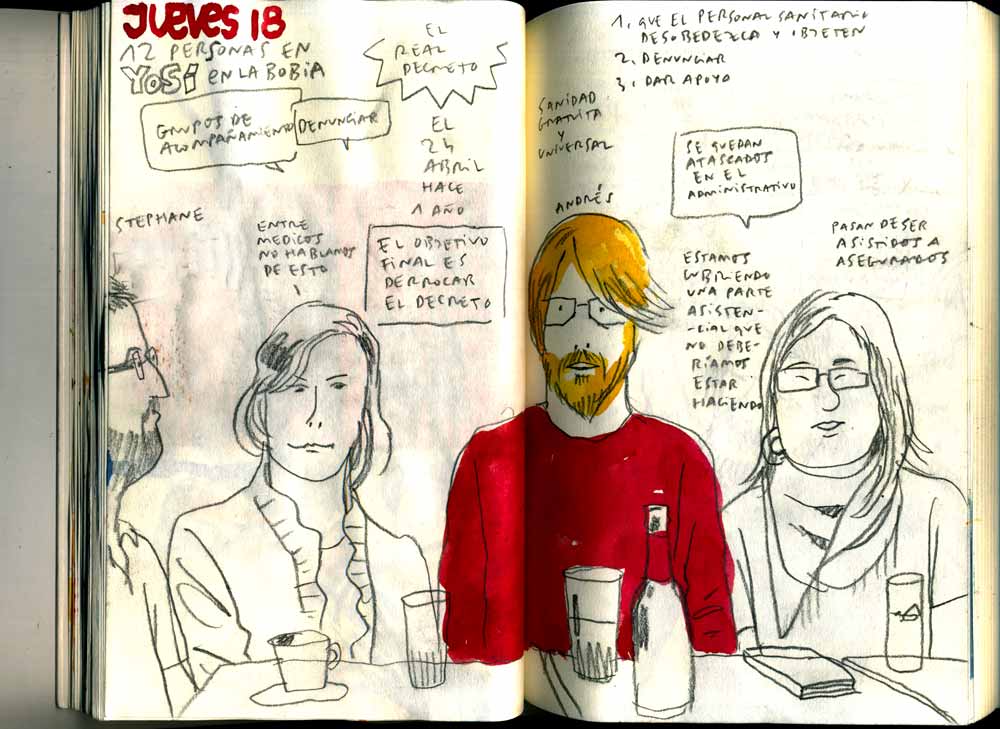 JUEVES 18
12 PERSONAS EN
YOSÍ EN LA BOBIA
GRUPOS DE
ACOMPAÑAMIENTO
DENUNCIAR
EL
REAL
DECRETO
EL
24
ABRIL
HACE
1 AÑO
STEPHANE
ENTRE
MEDICOS
NO HABLAMOS
DE ESTO
EL OBJETIVO
FINAL ES
DERROCAR
EL DECRETO
1. QUE EL PERSONAL SANITARIO
DESOBEDEZCA Y OBJETEN
2. DENUNCIAR
3. DAR APOYO
SANIDAD
GRATUITA
Y
UNIVERSAL
ANDRÉS
SE QUEDAN
ATASCADOS
EN EL
ADMINISTRATIVO
ESTAMOS
CUBRIENDO
UNA PARTE
ASISTEN-
-CIAL QUE
NO DEBE-
RÍAMOS
ESTAR
HACIENDO
PASAN DE SER
ASISTIDOS A
ASEGURADOS